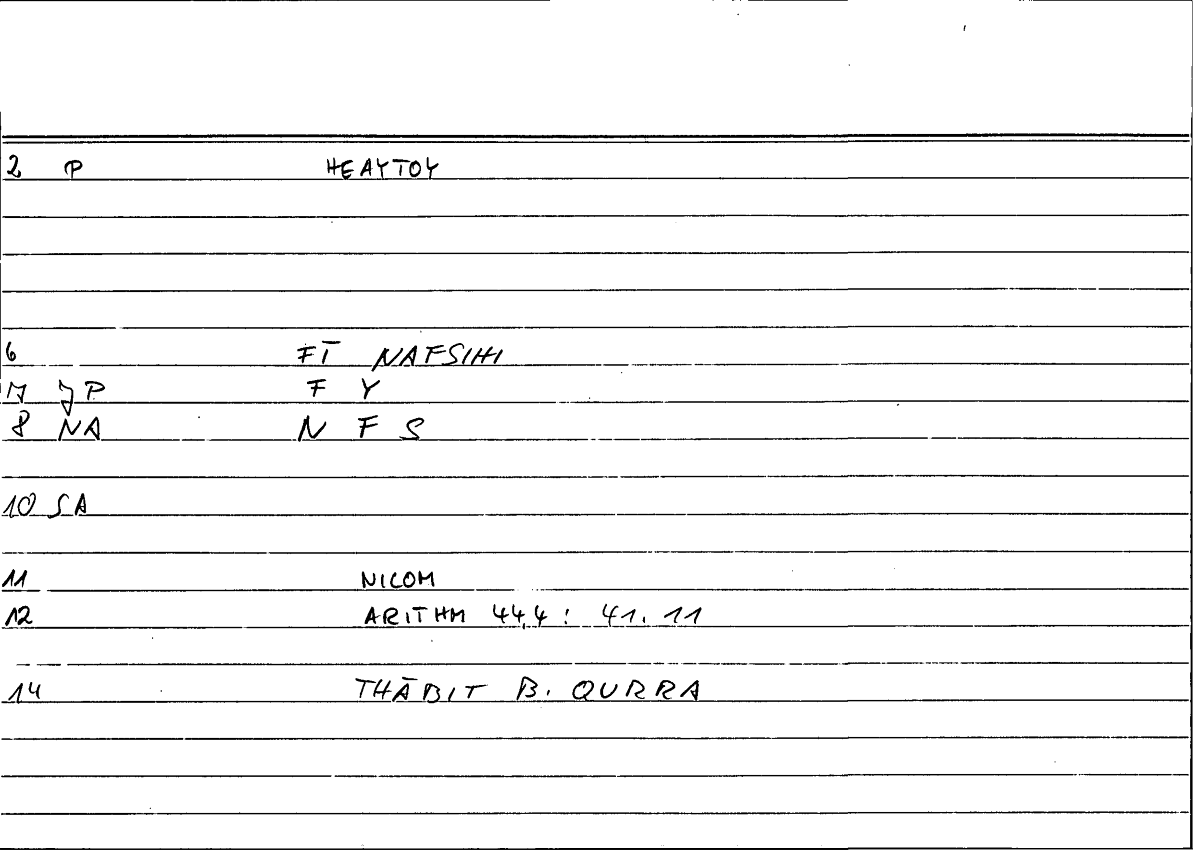 2 P HEAYTOY
6 FĪ NAFSIHI
17 JP F Y
8 NA N F S
10 SA
11 NICOM
12 ARITHM 44,4 : 41.11
14 THĀBIT B. QURRA